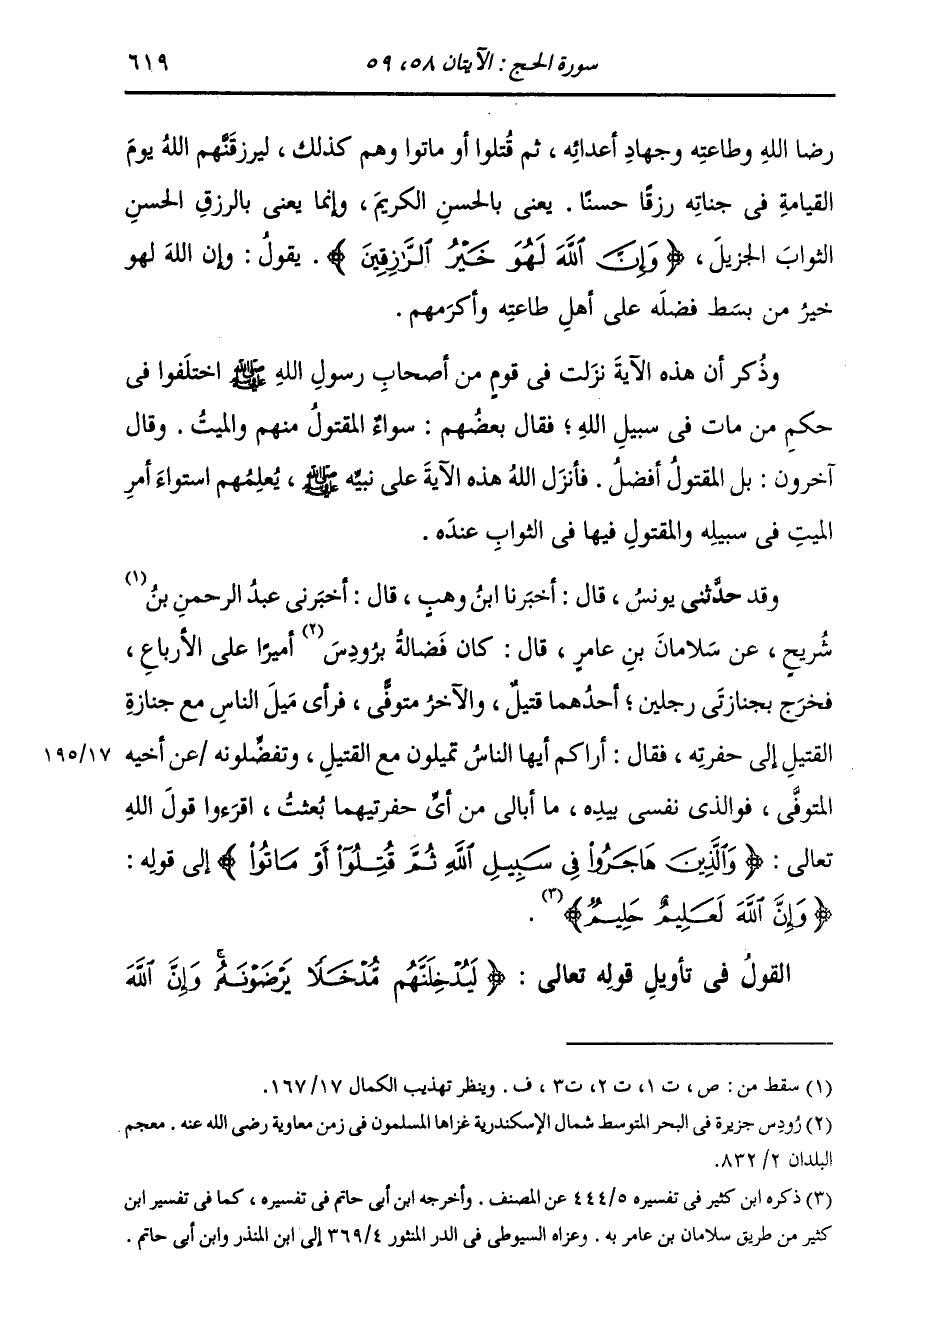 سورة الحج : الآيتان ٥٨، ٥٩ ٦١٩
رضا اللهِ وطاعتِه وجهادِ أعدائِه ، ثم قُتلوا أو ماتوا وهم كذلك ، ليرزقَنَّهم اللهُ يومَ
القيامةِ فى جناتِه رزقًا حسنًا . يعنى بالحسنِ الكريمَ ، وإنما يعنى بالرزقِ الحسنِ
الثوابَ الجزيلَ ، ﴿ وَإِنَّ ٱللَّهَ لَهُوَ خَيْرُ ٱلرَّٰزِقِينَ ﴾ . يقولُ : وإن اللهَ لهو
خيرُ من بسَط فضلَه على أهلِ طاعتِه وأكرَمهم .
وذُكر أن هذه الآيةَ نزَلت فى قومٍ من أصحابِ رسولِ اللهِ ﷺ اختلَفوا فى
حكمِ من مات فى سبيلِ اللهِ ؛ فقال بعضُهم : سواءٌ المقتولُ منهم والميتُ . وقال
آخرون : بل المقتولُ أفضلُ . فأنزَل اللهُ هذه الآيةَ على نبيِّه ﷺ ، يُعلِمُهم استواءَ أمرِ
الميتِ فى سبيلِه والمقتولِ فيها فى الثوابِ عندَه .
وقد حدَّثنى يونسُ ، قال : أخبَرنا ابنُ وهبٍ ، قال : أخبَرنى عبدُ الرحمنِ بنُ(١)
شُريحٍ ، عن سَلامانَ بنِ عامرٍ ، قال : كان فَضالةُ برُودِسَ(٢) أميرًا على الأرباعِ ،
فخرَج بجنازتَى رجلين ؛ أحدُهما قتيلٌ ، والآخرُ متوفًّى ، فرأى مَيلَ الناسِ مع جنازةِ
القتيلِ إلى حفرتِه ، فقال : أراكم أيها الناسُ تميلون مع القتيلِ ، وتفضِّلونه /عن أخيه ١٩٥/١٧
المتوفَّى ، فوالذى نفسى بيدِه ، ما أبالى من أىِّ حفرتيهما بُعثتُ ، اقرَءوا قولَ اللهِ
تعالى : ﴿ وَٱلَّذِينَ هَاجَرُوا۟ فِى سَبِيلِ ٱللَّهِ ثُمَّ قُتِلُوٓا۟ أَوْ مَاتُوا۟ ﴾ إلى قولِه :
﴿ وَإِنَّ ٱللَّهَ لَعَلِيمٌ حَلِيمٌ ﴾(٣) .
القولُ فى تأويلِ قولِه تعالى : ﴿ لَيُدْخِلَنَّهُم مُّدْخَلًا يَرْضَوْنَهُۥ ۗ وَإِنَّ ٱللَّهَ
(١) سقط من : ص ، ت ١، ت ٢، ت٣ ، ف . وينظر تهذيب الكمال ١٦٧/١٧.
(٢) رُودِس جزيرة فى البحر المتوسط شمال الإسكندرية غزاها المسلمون فى زمن معاوية رضى الله عنه . معجم
البلدان ٢/ ٨٣٢.
(٣) ذكره ابن كثير فى تفسيره ٤٤٤/٥ عن المصنف . وأخرجه ابن أبى حاتم فى تفسيره ، كما فى تفسير ابن
كثير من طريق سلامان بن عامر به . وعزاه السيوطى فى الدر المنثور ٣٦٩/٤ إلى ابن المنذر وابن أبى حاتم .